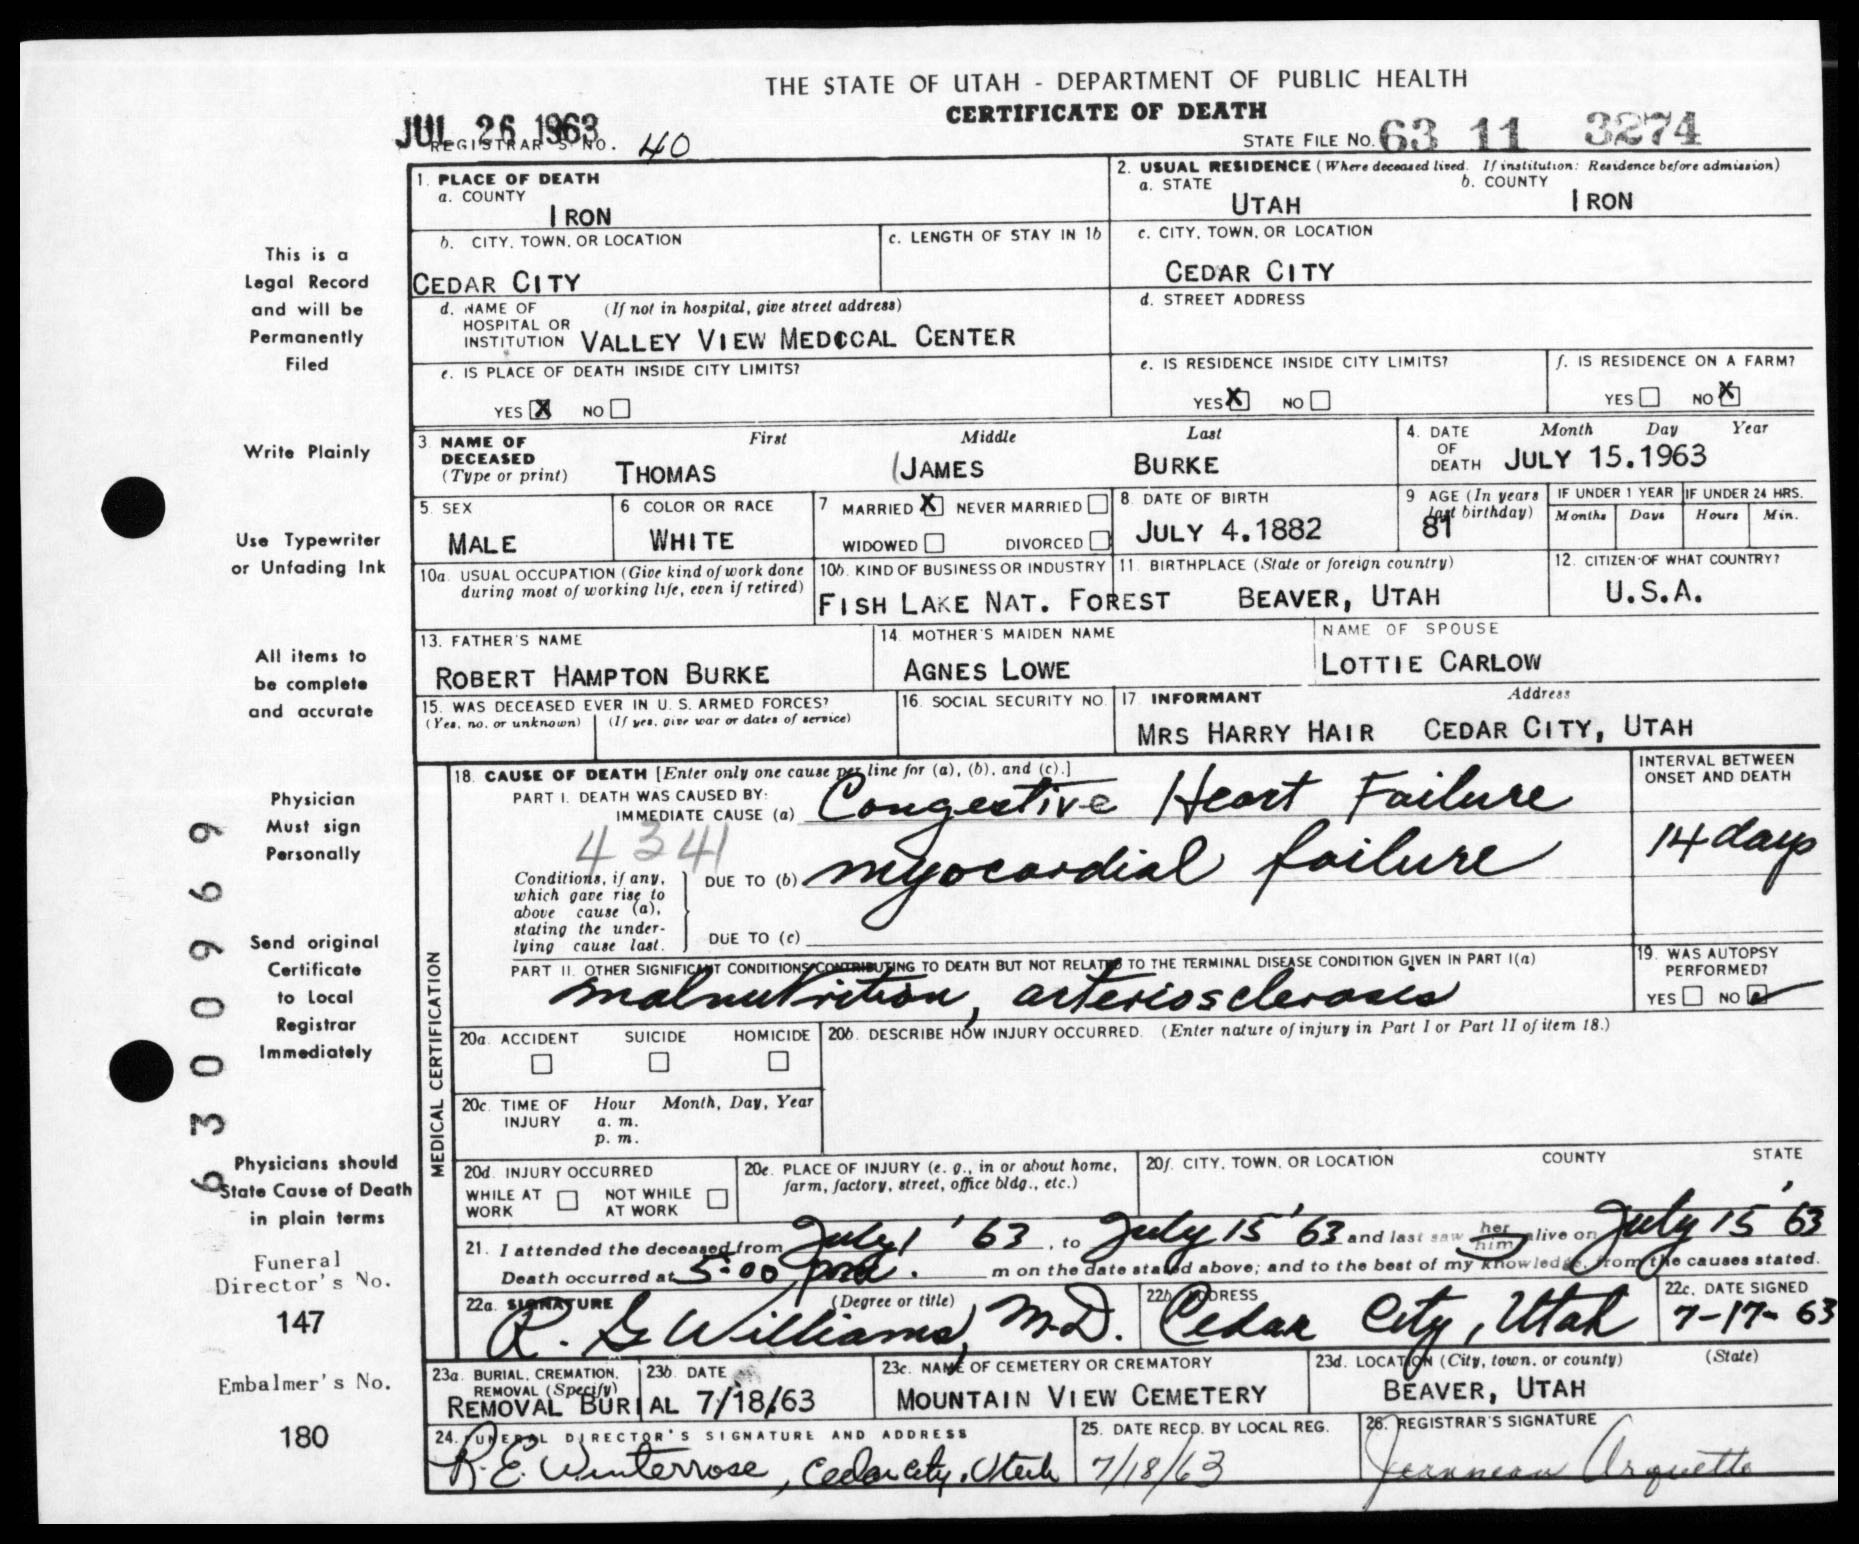 THE STATE OF UTAH - DEPARTMENT OF PUBLIC HEALTH
CERTIFICATE OF DEATH
JUL 26 1963
REGISTRAR'S NO. 40
STATE FILE NO. 63 11 3274
1. PLACE OF DEATH
a. COUNTY
IRON
2. USUAL RESIDENCE (Where deceased lived. If institution: Residence before admission)
a. STATE b. COUNTY
UTAH IRON
b. CITY, TOWN, OR LOCATION
CEDAR CITY
c. LENGTH OF STAY IN 1b
c. CITY, TOWN, OR LOCATION
CEDAR CITY
d. NAME OF HOSPITAL OR INSTITUTION (If not in hospital, give street address)
VALLEY VIEW MEDCCAL CENTER
d. STREET ADDRESS
e. IS PLACE OF DEATH INSIDE CITY LIMITS?
YES X NO
e. IS RESIDENCE INSIDE CITY LIMITS?
YES X NO
f. IS RESIDENCE ON A FARM?
YES NO X
3. NAME OF DECEASED (Type or print)
First Middle Last
THOMAS JAMES BURKE
4. DATE OF DEATH Month Day Year
JULY 15.1963
5. SEX
MALE
6 COLOR OR RACE
WHITE
7 MARRIED X NEVER MARRIED
WIDOWED DIVORCED
8. DATE OF BIRTH
JULY 4.1882
9 AGE (In years last birthday)
81
IF UNDER 1 YEAR IF UNDER 24 HRS.
Months Days Hours Min.
10a. USUAL OCCUPATION (Give kind of work done during most of working life, even if retired)
10b. KIND OF BUSINESS OR INDUSTRY
FISH LAKE NAT. FOREST
11. BIRTHPLACE (State or foreign country)
BEAVER, UTAH
12. CITIZEN OF WHAT COUNTRY?
U.S.A.
13. FATHER'S NAME
ROBERT HAMPTON BURKE
14. MOTHER'S MAIDEN NAME
AGNES LOWE
NAME OF SPOUSE
LOTTIE CARLOW
15. WAS DECEASED EVER IN U. S. ARMED FORCES?
(Yes, no, or unknown) (If yes, give war or dates of service)
16. SOCIAL SECURITY NO.
17. INFORMANT Address
MRS HARRY HAIR CEDAR CITY, UTAH
MEDICAL CERTIFICATION
18. CAUSE OF DEATH [Enter only one cause per line for (a), (b), and (c).]
PART I. DEATH WAS CAUSED BY:
IMMEDIATE CAUSE (a) Congestive Heart Failure
4341
Conditions, if any, which gave rise to above cause (a), stating the underlying cause last.
DUE TO (b) myocardial failure
DUE TO (c)
INTERVAL BETWEEN ONSET AND DEATH
14 days
PART II. OTHER SIGNIFICANT CONDITIONS CONTRIBUTING TO DEATH BUT NOT RELATED TO THE TERMINAL DISEASE CONDITION GIVEN IN PART I(a)
malnutrition, arteriosclerosis
19. WAS AUTOPSY PERFORMED?
YES NO
20a. ACCIDENT SUICIDE HOMICIDE
20b. DESCRIBE HOW INJURY OCCURRED. (Enter nature of injury in Part I or Part II of item 18.)
20c. TIME OF INJURY Hour Month, Day, Year
a. m.
p. m.
20d. INJURY OCCURRED
WHILE AT WORK NOT WHILE AT WORK
20e. PLACE OF INJURY (e. g., in or about home, farm, factory, street, office bldg., etc.)
20f. CITY, TOWN, OR LOCATION COUNTY STATE
21. I attended the deceased from July 1 '63, to July 15 '63 and last saw her him alive on July 15 '63
Death occurred at 5:00 pm. m on the date stated above; and to the best of my knowledge, from the causes stated.
22a. SIGNATURE (Degree or title)
R. G Williams, M.D.
22b. ADDRESS
Cedar City, Utah
22c. DATE SIGNED
7-17-63
23a. BURIAL, CREMATION, REMOVAL (Specify)
REMOVAL BURIAL
23b. DATE
7/18/63
23c. NAME OF CEMETERY OR CREMATORY
MOUNTAIN VIEW CEMETERY
23d. LOCATION (City, town, or county) (State)
BEAVER, UTAH
24. FUNERAL DIRECTOR'S SIGNATURE AND ADDRESS
R. E. Winterrose, Cedar City, Utah
25. DATE RECD. BY LOCAL REG.
7/18/63
26. REGISTRAR'S SIGNATURE
Arquette
This is a
Legal Record
and will be
Permanently
Filed
Write Plainly
Use Typewriter
or Unfading Ink
All items to
be complete
and accurate
Physician
Must sign
Personally
Send original
Certificate
to Local
Registrar
Immediately
Physicians should
State Cause of Death
in plain terms
Funeral
Director's No.
147
Embalmer's No.
180
6300969